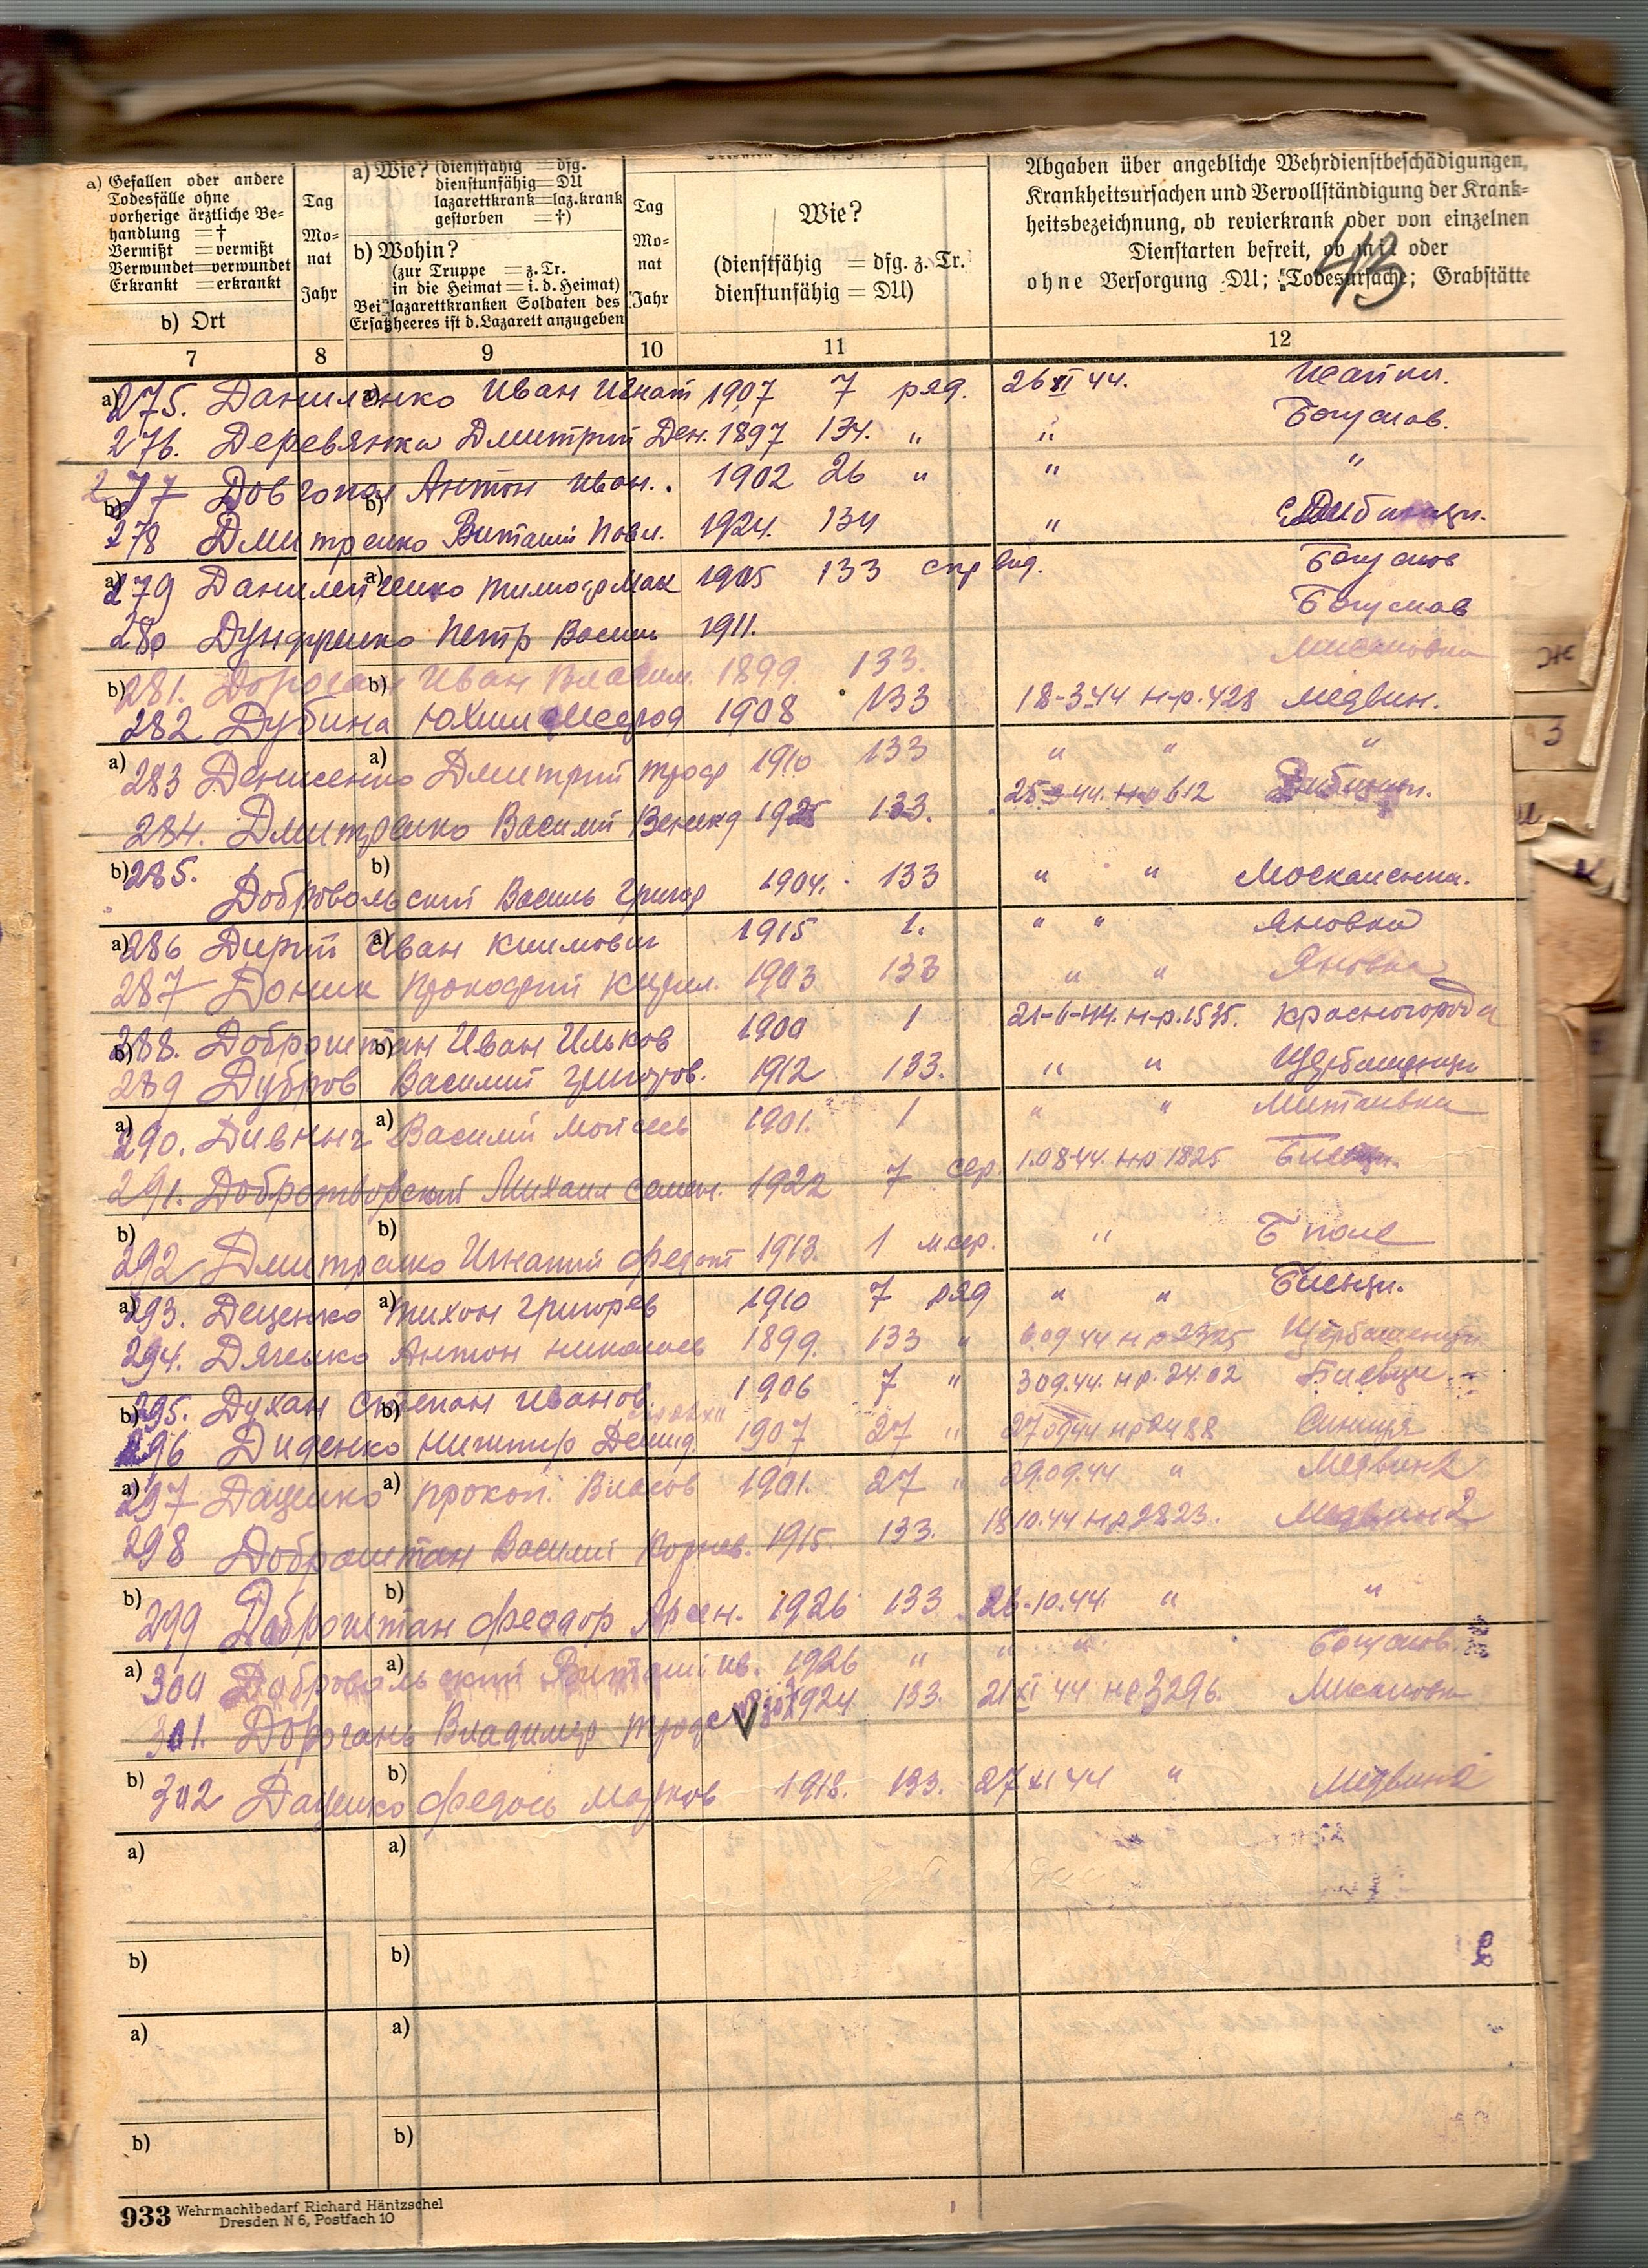 a) Gefallen oder andere
Todesfälle ohne
vorherige ärztliche Be-
handlung = †
Vermißt = vermißt
Verwundet = verwundet
Erkrankt = erkrankt
b) Ort
Tag
Mo-
nat
Jahr
a) Wie? (dienstfähig = dfg.
dienstunfähig = DU
lazarettkrank = laz.krank
gestorben = †)
b) Wohin?
(zur Truppe = z. Tr.
in die Heimat = i. d. Heimat)
Bei lazarettkranken Soldaten des
Ersatzheeres ist d. Lazarett anzugeben
Tag
Mo-
nat
Jahr
Wie?
(dienstfähig = dfg. z. Tr.
dienstunfähig = DU)
Abgaben über angebliche Wehrdienstbeschädigungen,
Krankheitsursachen und Vervollständigung der Krank-
heitsbezeichnung, ob revierkrank oder von einzelnen
Dienstarten befreit, ob mit oder
ohne Versorgung DU; Todesursache; Grabstätte
43
7 8 9 10 11 12
275. Даниленко Иван Игнат 1907 7 ряд. 26 XI 44.
276. Деревянко Дмитрий Ден. 1897 134. " " Богуслав.
277 Довгопол Антон Иван. 1902 26 " " "
278 Дмитренко Виталий Павл. 1924. 134 "
279 Данилейченко 1905 133 Богуслав
280 Петр Васил 1911. Богуслав
281. Дороган Иван 1899. 133. Мисайловка
282 Дубина Юхим 1908 133 18-3-44 н-р. 428 Медвин.
283 Денисенко Дмитрий 1910 133 " " "
284. Дмитренко Василий 133. 25.3-44. н-р 612
285.
Добровольский Василь Григор 1904. 133 " " Москаленки.
286 Дирий Иван Климович 1915 1. " " Яновка
287 Доник Прокофий Кирил. 1903 133 " " Яновка
288. Доброштан Иван Ильков 1900 1 21-6-44. н-р. 1535. Красногородка
289 Дубров Василий Григоров. 1912 133. " "
290. Дивнич Василий Моисеев 1901. 1 " "
291. Добротворский Михаил Семен. 1922 7 сер. 1.08-44. н-р 1825
292 Дмитренко Игнатий Федот 1913. 1 м.сер. " Б поле
293. Деценко Тихон Григорьев 1910 7 ряд " " Биевцы.
294. Дяченко Антон Николаев 1899. 133 "
295. Духан Степан Иванов 1906 7 " 3 09.44. н р. 24.02 Биевцы
296 Диденко Никифор Демид 1907 27 " 27 09 44 н р 2488 Синица
297 Даценко Прокоп. Власов 1901. 27 " 29.09.44 " Медвин 2
298 Доброштан Василий Корнев. 1915. 133. 18 10.44 н р 2823. Медвин 2
299 Доброштан Феодор Арсен. 1926 133 26-10.44. " "
300 Добровольский Виталий ив. 1926 " " " Богуслав.
301. Дорогань Владимир 1924. 133. 21 XI 44 н р 3296.
302 Даценко Федось Марков 1918. 133. 27 XI 44 " Медвин 2
a) a)
b) b)
a) a)
b) b)
933 Wehrmachtbedarf Richard Häntzschel
Dresden N 6, Postfach 10